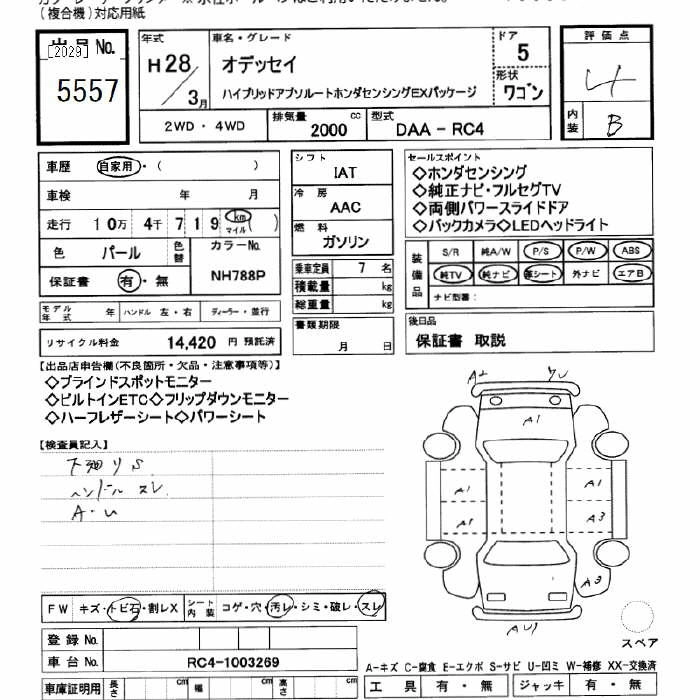 (複合機)対応用紙
出品No.
[2029]
5557
年式
H28/3月
車名・グレード
オデッセイ
ハイブリッドアブソルートホンダセンシングEXパッケージ
ドア
5
形状
ワゴン
2WD・4WD
排気量 2000 cc
型式 DAA-RC4
評価点
4
内装
B
車歴 自家用・( )
車検 年 月
走行 10万4千719 km マイル ( )
色 パール 色替 カラーNo. NH788P
保証書 有・無
モデル年式 年 ハンドル 左・右 ディーラー・並行
リサイクル料金 14,420 円 預託済
シフト
IAT
冷房
AAC
燃料
ガソリン
乗車定員 7 名
積載量 kg
総重量 kg
書類期限
月 日
セールスポイント
◇ホンダセンシング
◇純正ナビ・フルセグTV
◇両側パワースライドドア
◇バックカメラ◇LEDヘッドライト
装備品
S/R 純A/W P/S P/W ABS
純TV 純ナビ 革シート 外ナビ エアB
ナビ型番:
後日品
保証書 取説
【出品店申告欄(不良箇所・欠品・注意事項等)】
◇ブラインドスポットモニター
◇ビルトインETC◇フリップダウンモニター
◇ハーフレザーシート◇パワーシート
【検査員記入】
下廻リS
ハンドルスレ
A・U
A1
A1
A1
A1
A3
A3
FW キズ・トビ石・割レX シート内装 コゲ・穴・汚レ・シミ・破レ・スレ
登録No.
車台No. RC4-1003269
車庫証明用 長さ cm 幅 cm 高さ cm
スペア
A-キズ C-腐食 E-エクボ S-サビ U-凹ミ W-補修 XX-交換済
工具 有・無 ジャッキ 有・無